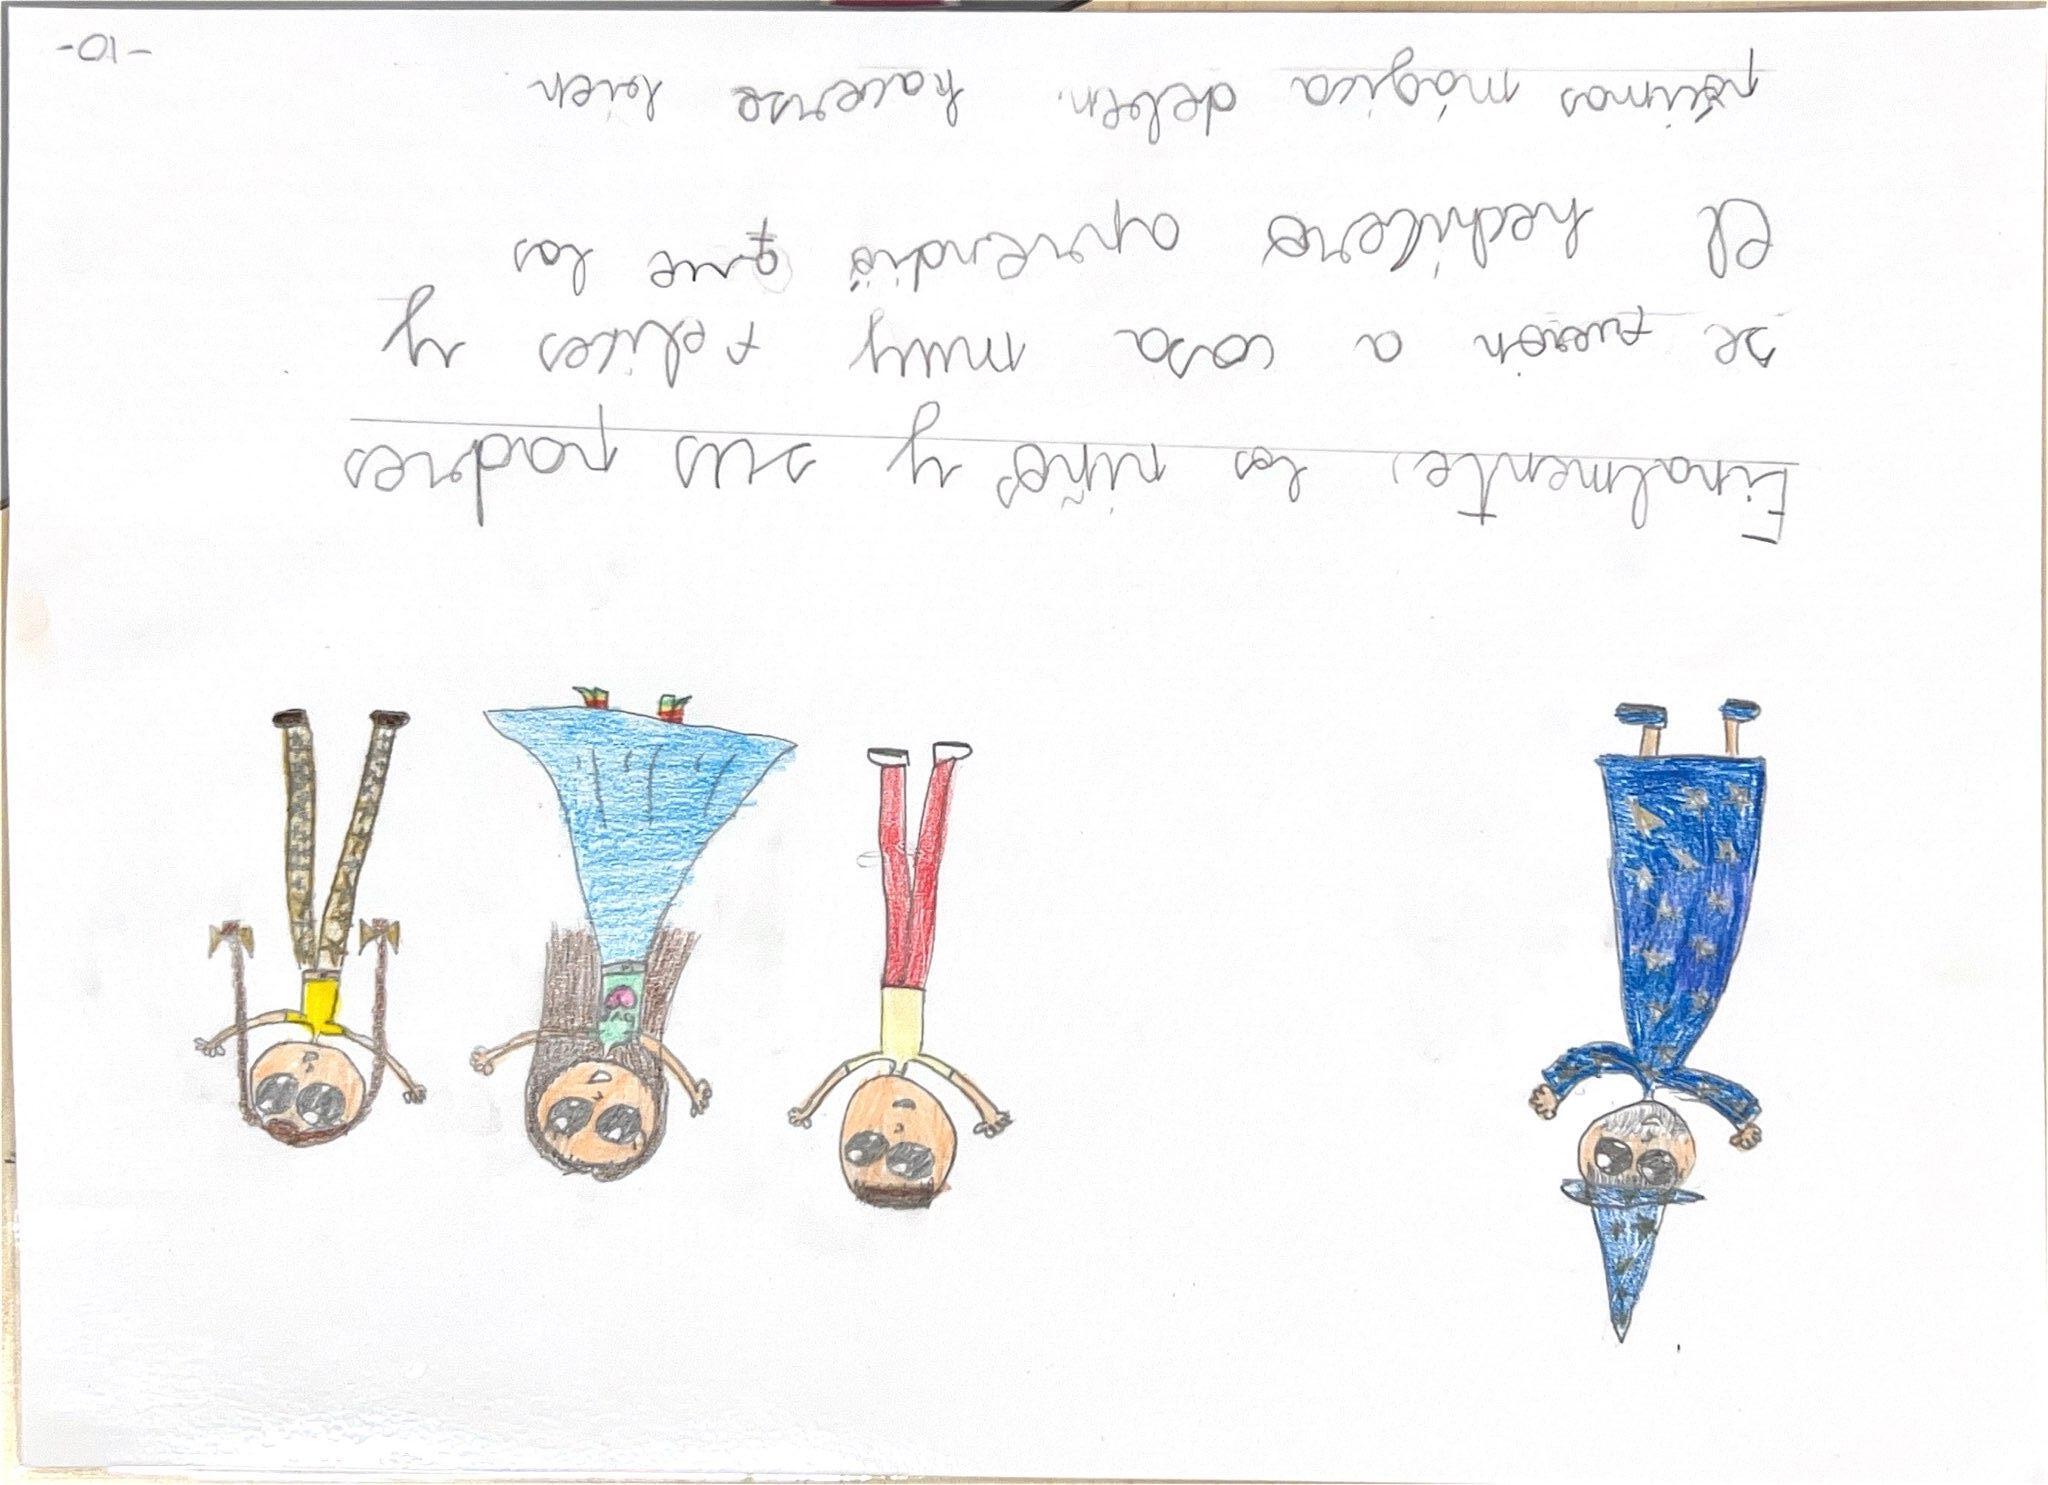 Finalmente, los niños y sus padres
se fueron a casa muy felices y
el hechicero aprendió que las
pócimas mágica deben. hacerse bien
-10-